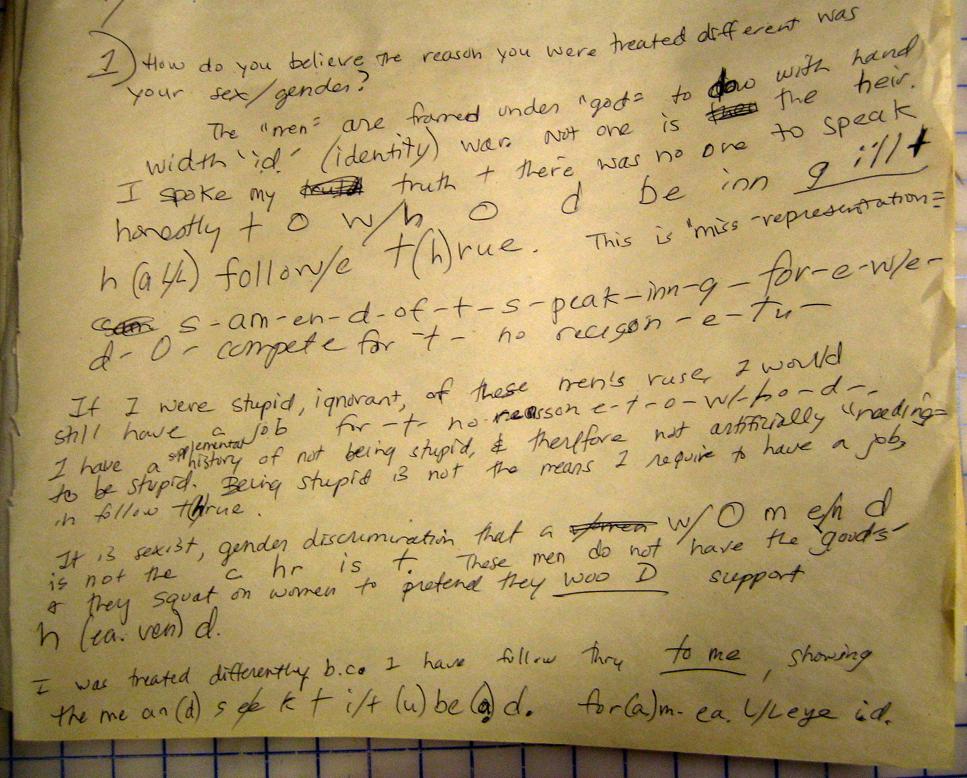 1) How do you believe the reason you were treated different was
your sex/gender?
The "men" are framed under "god" to dow with hand
width "id" (identity) was not one is the heir.
I spoke my truth + there was no one to speak
honestly + O w/h O d be inn g ill t
h (a LL) follow/e t(h)rue. This is "miss-representation"
s-am-en-d-of-t-s-peak-inn-g-for-e-w/e-
d-O-compete for-t-no reason-e-tu-
If I were stupid, ignorant, of these men's ruse, I would
still have a job for-t-no reasson e-t-o-w/-ho-d-.
I have a supplemental history of not being stupid, & therefore not artificially "needing"
to be stupid. Being stupid is not the means I require to have a job,
in follow thrue.
It is sexist, gender discrimination that a w/O m e/n d
is not the c hr is t. These men do not have the "goods"
& they squat on women to pretend they woo D support
h (ea. ven) d.
I was treated differently b.c. I have follow thru to me, showing
the me an(d) s e/e k t i/t (u) be (a) d. for(a)m-ea. L/Lege id.